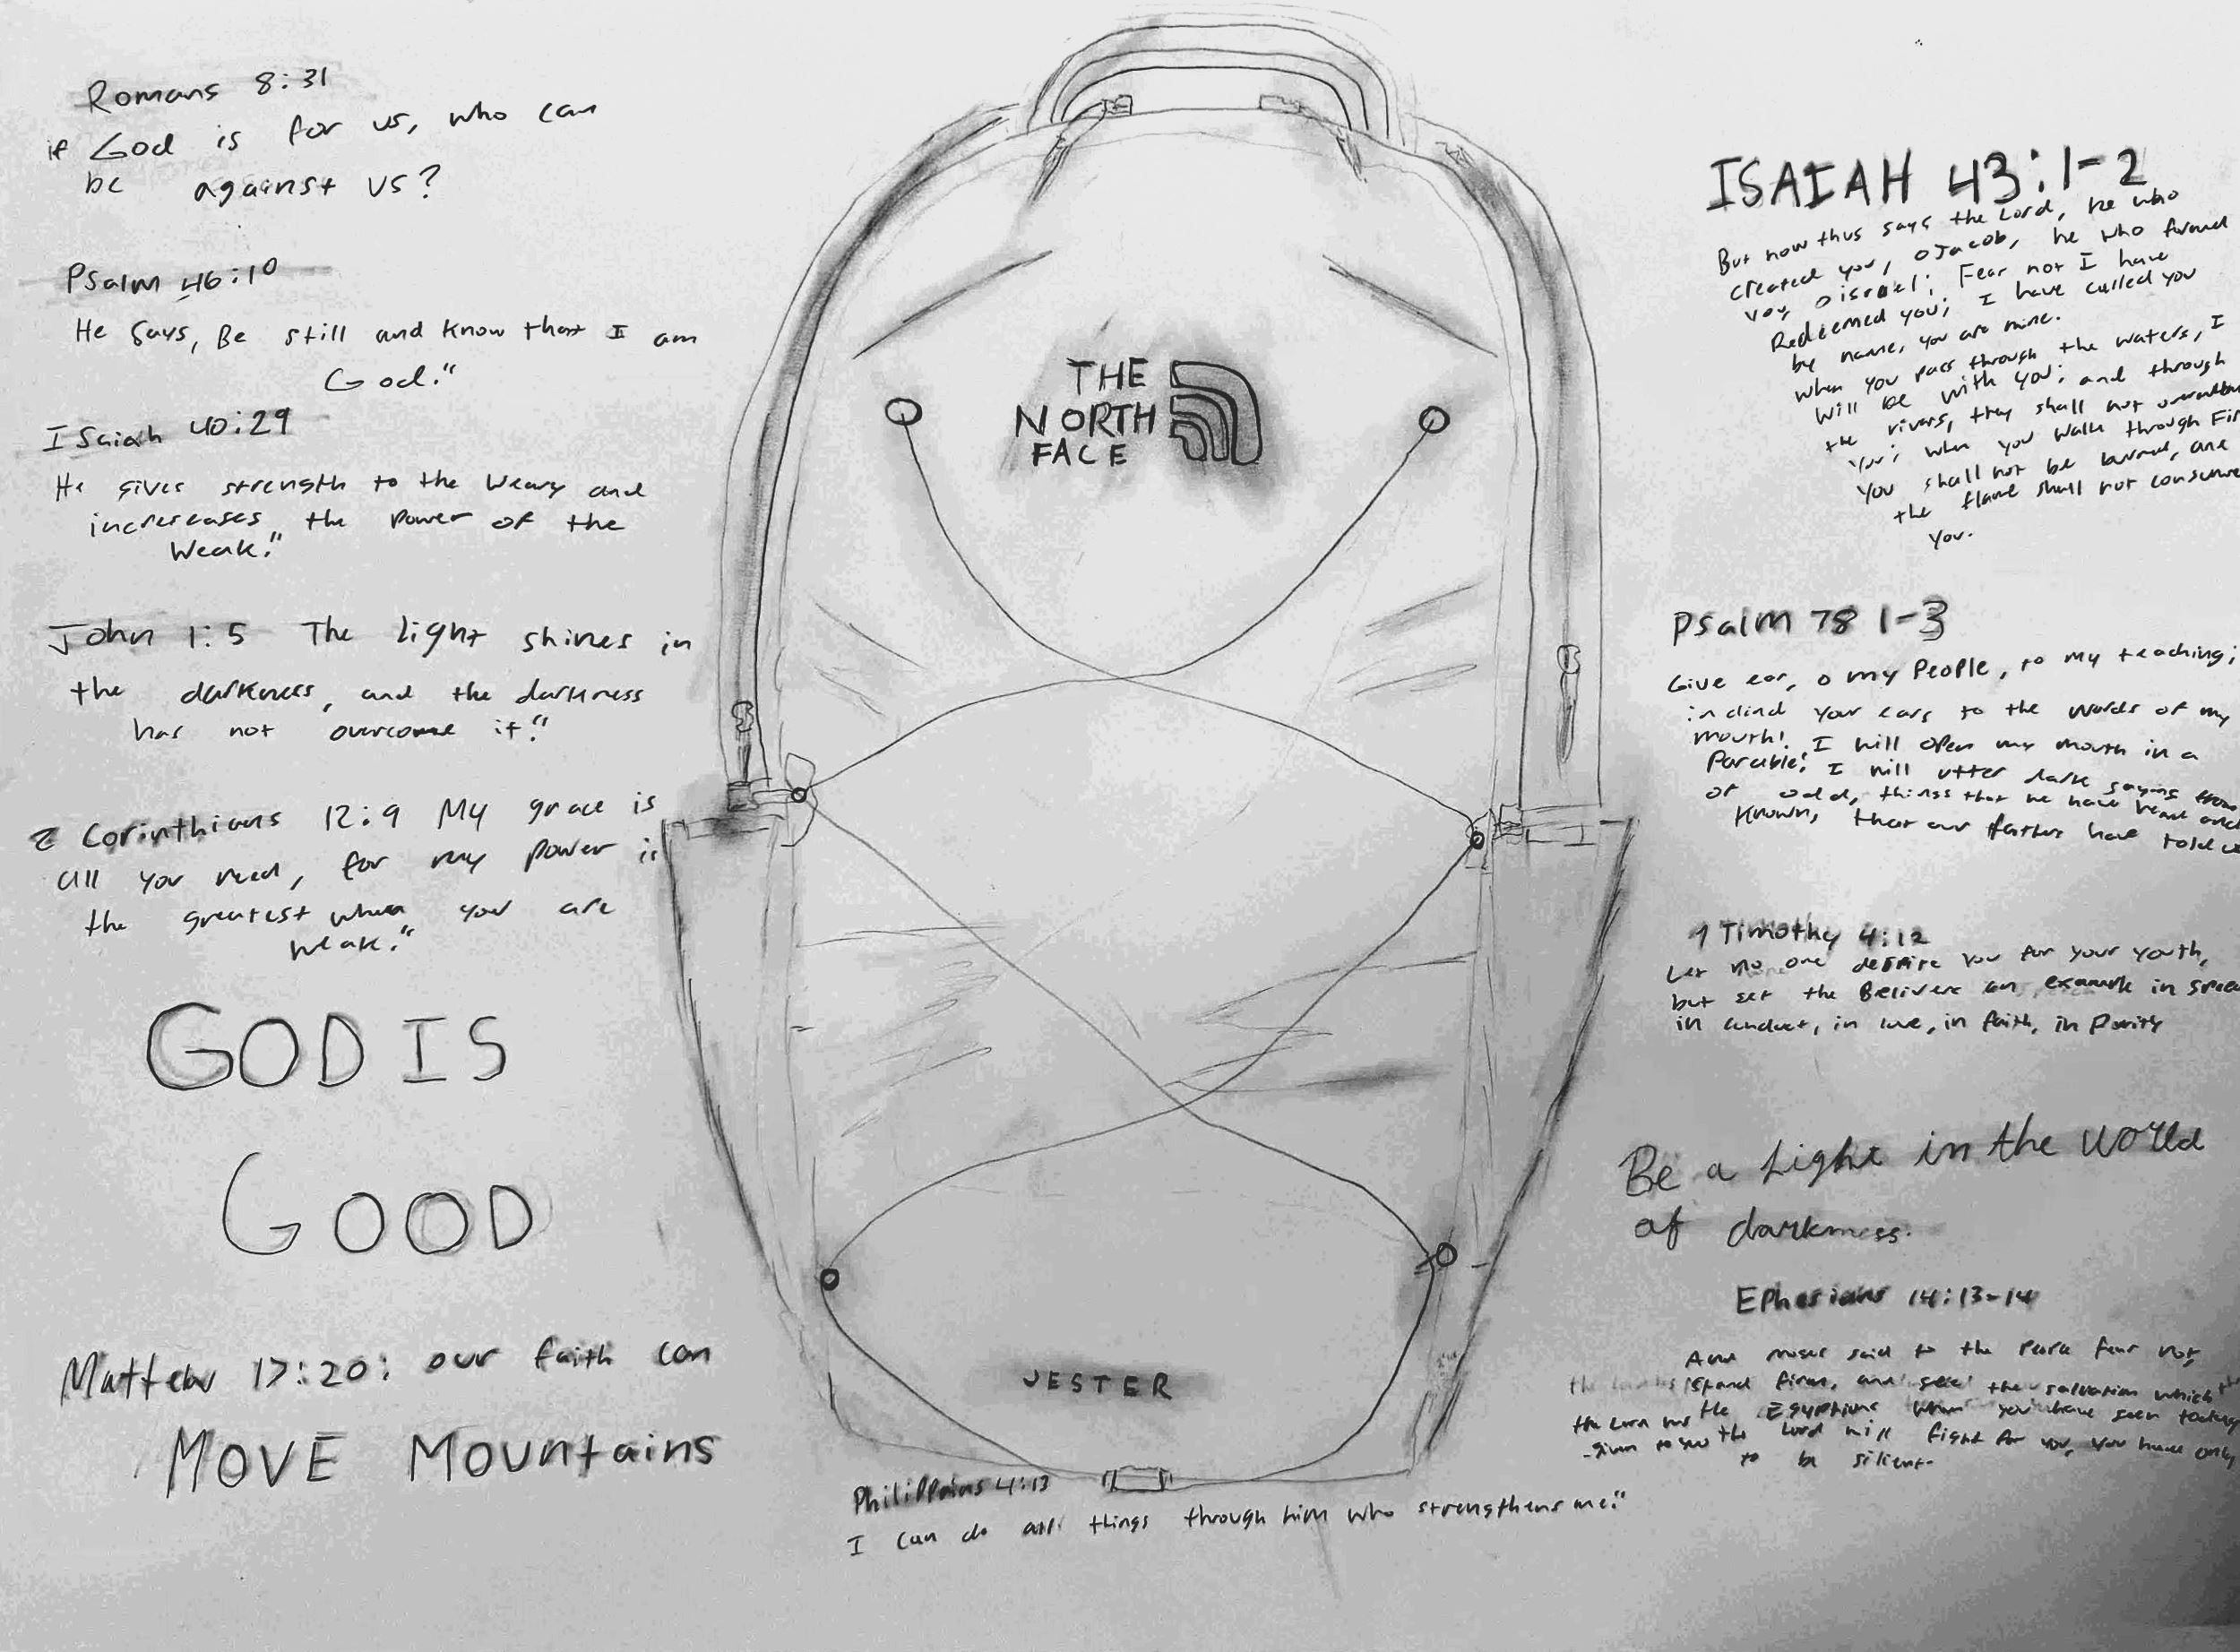 Romans 8:31
if God is for us, who can
be against us?
Psalm 46:10
He Says, Be still and know that I am
God."
ISaiah 40:29
He gives strength to the weary and
increreases the power of the
Weak."
John 1:5 The light shines in
the darkness, and the darkness
has not overcome it."
2 Corinthians 12:9 My grace is
all you need, for my power is
the greatest when you are
weak."
GOD IS
GOOD
Mattew 17:20: our faith can
MOVE Mountains
THE
NORTH
FACE
JESTER
Philippains 4:13
I can do all things through him who strengthens me."
ISAIAH 43:1-2
But now thus says the Lord, he who
created you, O Jacob, he who formed
you, O israel; Fear not I have
Redeemed you; I have called you
by name, you are mine.
when you pass through the waters, I
will be with you; and through
the rivers, they shall not
you; when you walk through
you shall not be burned, and
the flame shall not consume
you.
Psalm 78 1-3
Give ear, o my People, to my teaching;
inclind your ears to the words of my
mouth! I will open my mouth in a
Parable; I will utter dark sayings from
of old, things that we have heard and
known, that our fathers have told us
1 Timothy 4:12
Let no one despise you for your youth,
but set the Belivers an example in
in conduct, in love, in faith, in Purity
Be a Light in the world
of darkness.
Ephesians 14:13-14
And moses said to the fear not,
stand firm, and see the salvation which
the Egyptians whom you have seen today
the Lord will fight for you, you have only
to be silient.